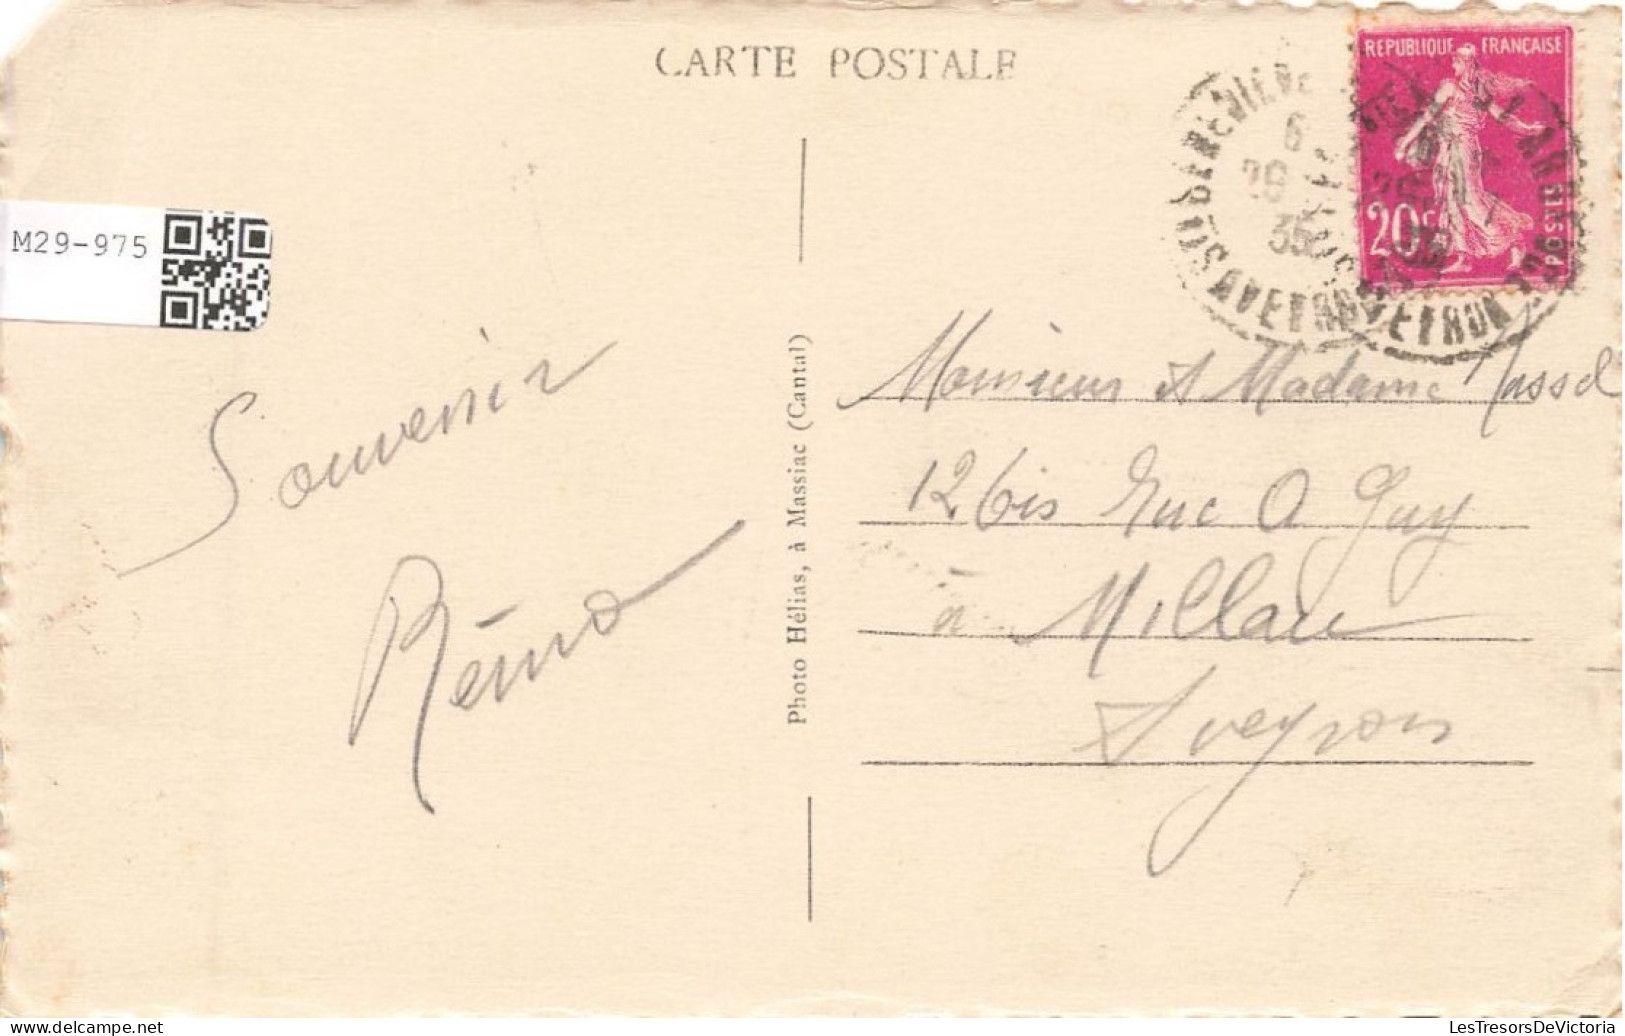 CARTE POSTALE
REPUBLIQUE FRANÇAISE
20c
POSTES
6
35
AVEYRON
M29-975
Souvenir
Rémo
Photo Hélias, à Massiac (Cantal)
Monsieur et Madame
12 bis Rue Guy
à Millau
Aveyron
www.delcampe.net
LesTresorsDeVictoria